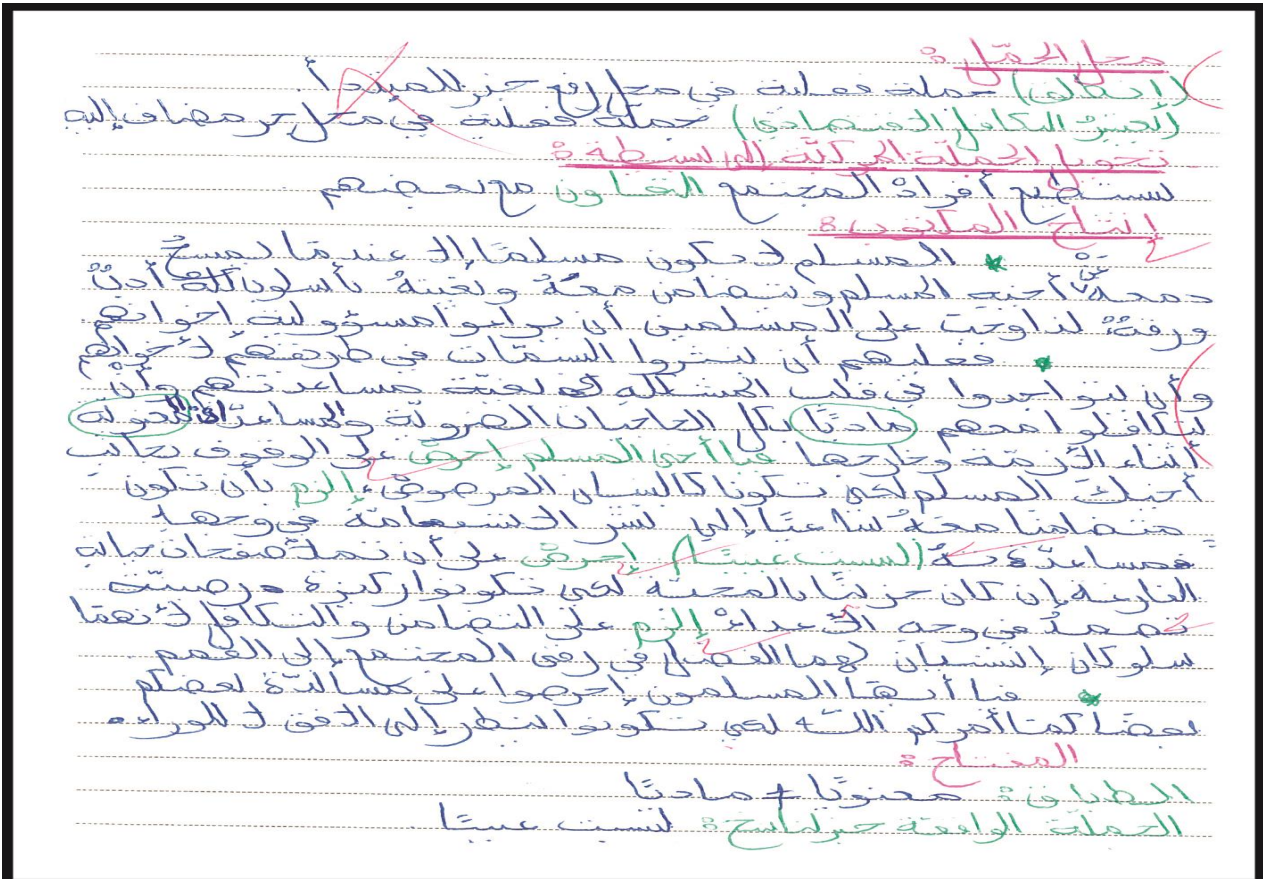 محل الجمل :
(إنطلق) جملة فعلية في محل رفع خبر للمبتدأ.
(يعتبر التكافل الاجتماعي) جملة فعلية في محل جر مضاف إليه
تحويل الجملة المركبة إلى بسيطة :
يستطيع أفراد المجتمع التعاون مع بعضهم
إنتاج المكتوب :
المسلم لا يكون مسلما إلا عندما يمسح
دمعة أخيه المسلم و يتضامن معه و يغيثه بأسلوب أدب
ورفق لذا وجب على المسلمين أن يراعوا مسؤولية إخوانهم.
فعليهم أن ينشروا البسمات في طريقهم لأخوانهم
وأن يتواجدوا في قلب المشكلة بغية مساعدتهم وأن
يتكافلوا معهم ماديا بكل الحاجات الضرورية والمساعدات المعنوية
أثناء الأزمة وخارجها فيا أخي المسلم إحرص على الوقوف بجانب
أخيك المسلم لكي تكونا كالبنيان المرصوص، إلزم بأن تكون
متضامنا معه ساعيا إلى نشر الابتسامة في وجهه
فمساعدته (ليست عيبا) إحرص على أن تملأ صفحات حياته
الفارغة إن كان حزينا بالمحبة لكي تكونوا ركيزة
تصمد في وجه الأعداء إلزم على التضامن والتكافل لأنهما
سلوكان إنسانيان لهما الفضل في رقي المجتمع إلى القمم.
فيا أيها المسلمون إحرصوا على مساندة بعضكم
بعضا كما أمركم الله لكي تكونوا لننظر إلى الأفق لا للوراء.
المفتاح :
الطباق : معنويا ≠ ماديا
الجملة الواقعة خبر لناسخ : ليست عيبا.